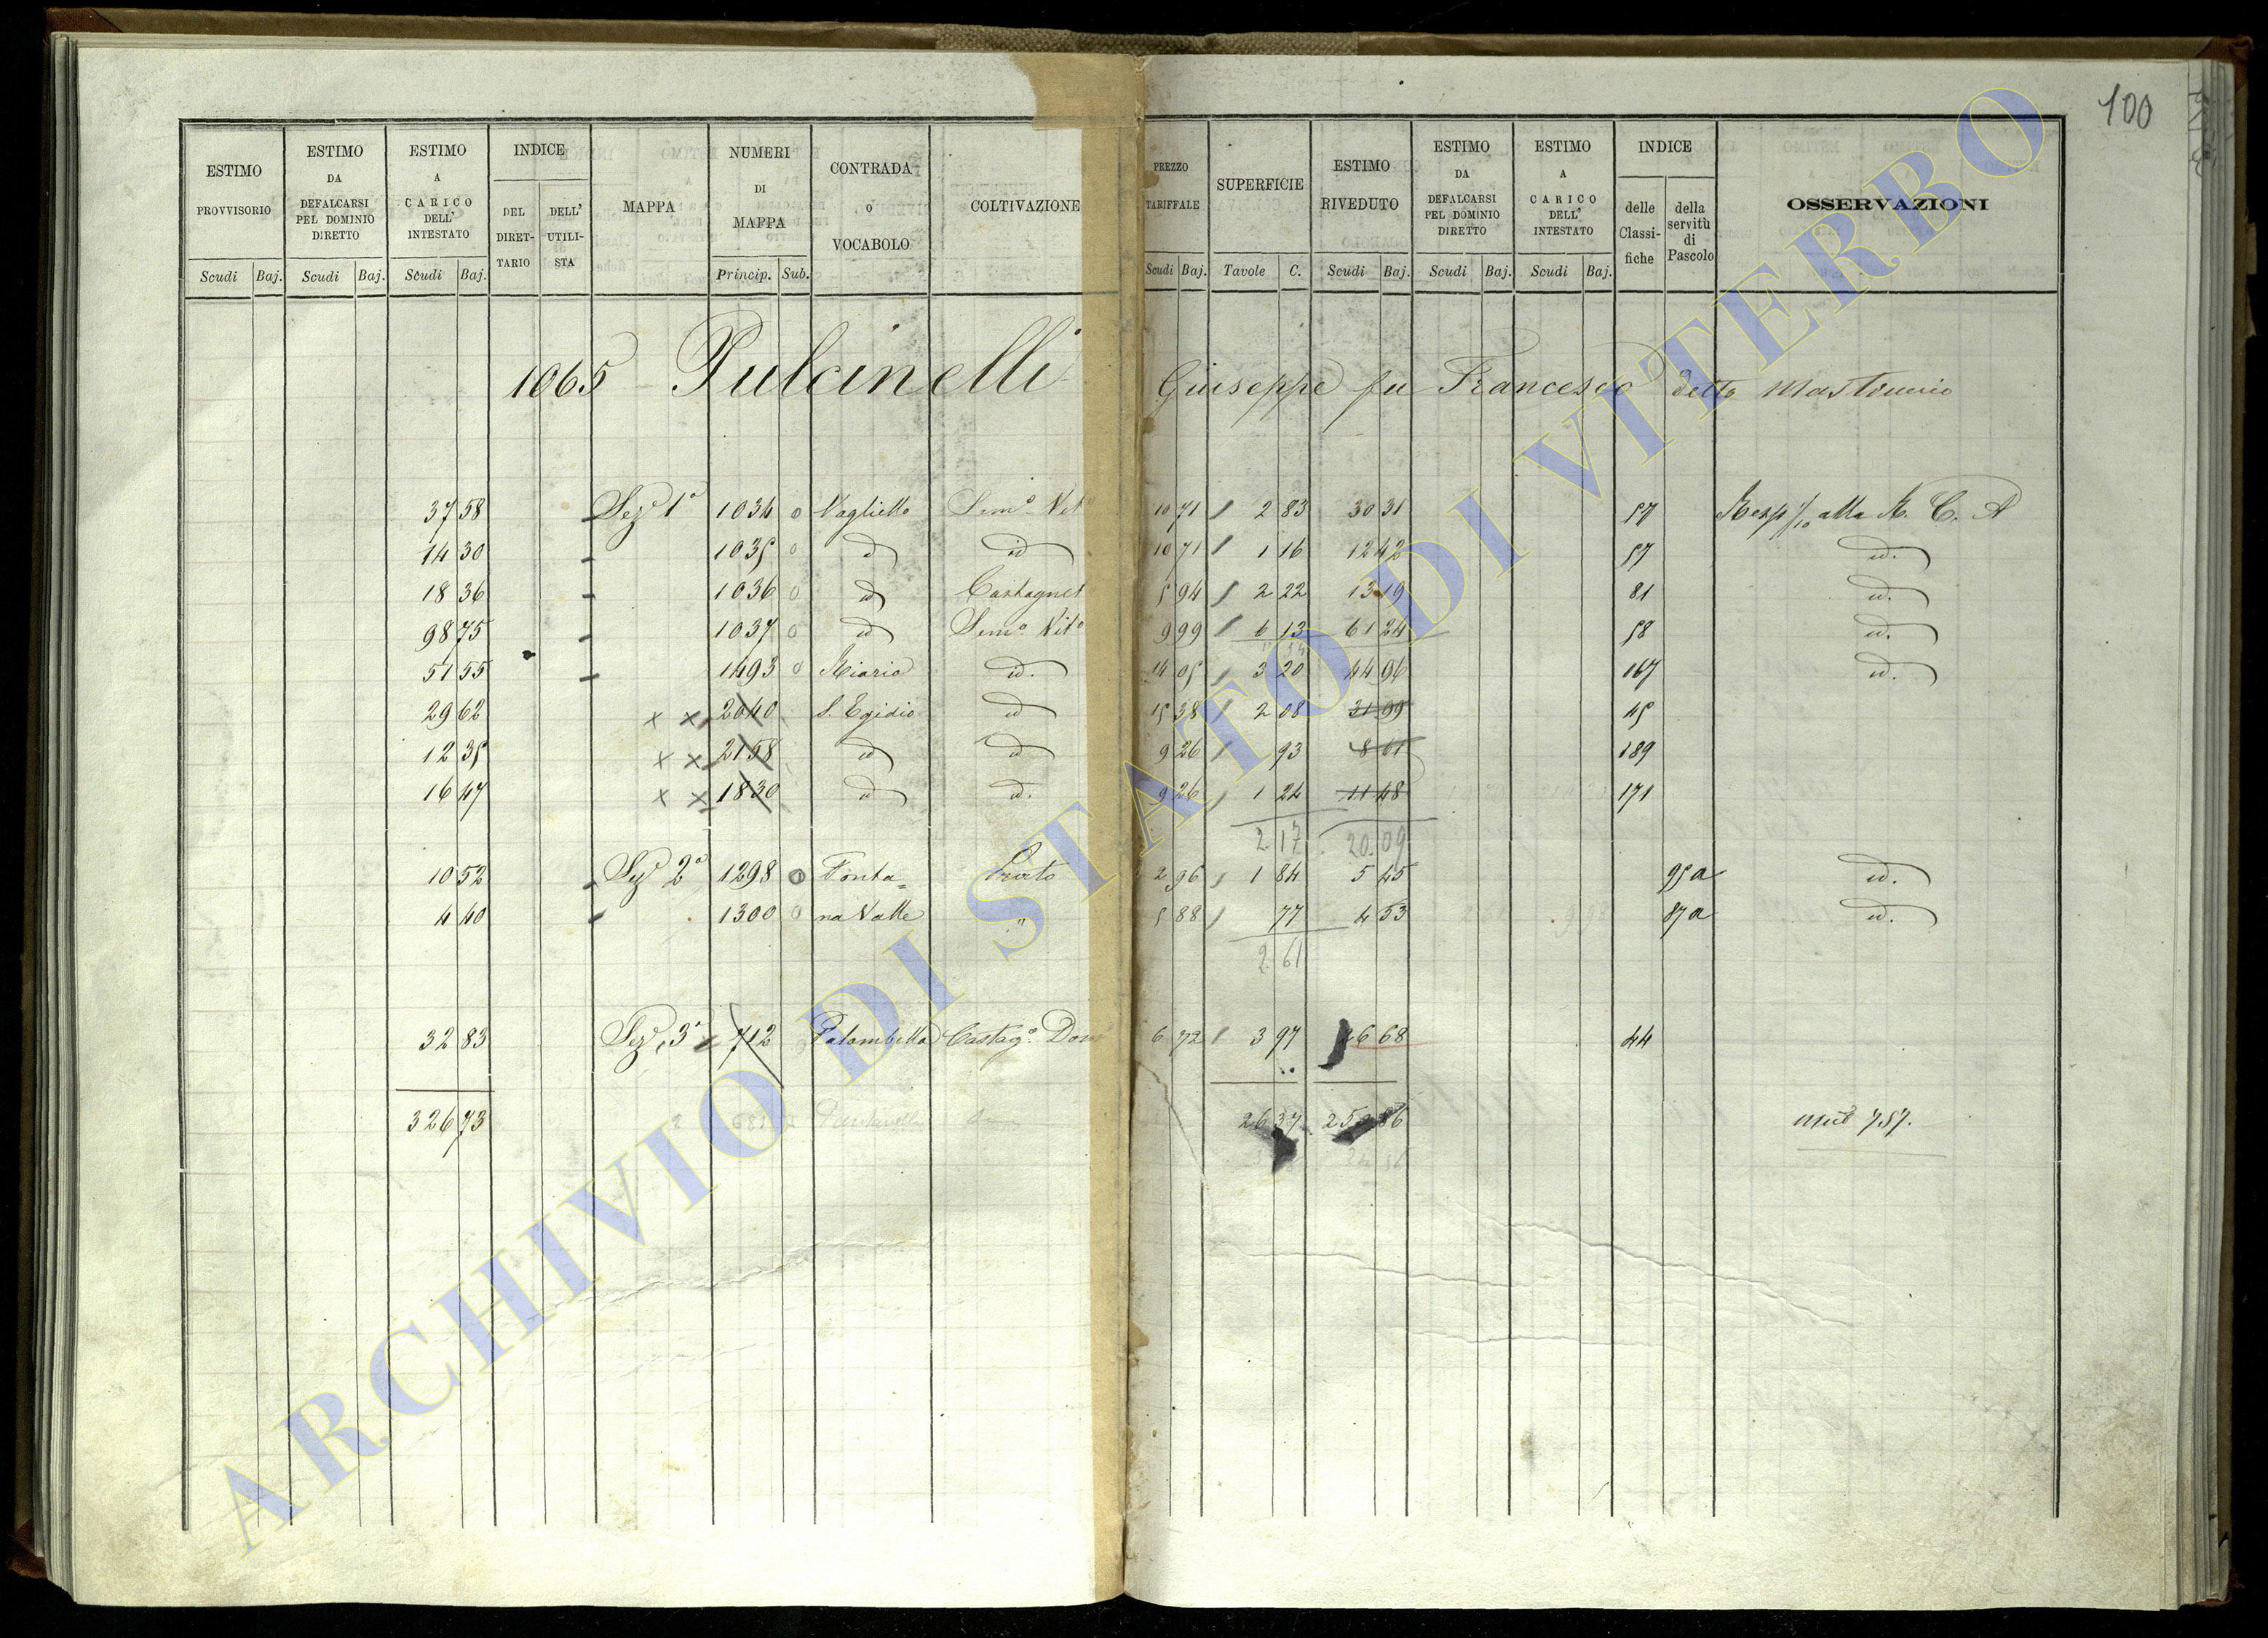 100
ESTIMO PROVVISORIO Scudi Baj.
ESTIMO DA DEFALCARSI PEL DOMINIO DIRETTO Scudi Baj.
ESTIMO A CARICO DELL' INTESTATO Scudi Baj.
INDICE DEL DIRET-TARIO DELL' UTILI-STA
MAPPA
NUMERI DI MAPPA Princip. Sub.
CONTRADA O VOCABOLO
COLTIVAZIONE
PREZZO TARIFFALE Scudi Baj.
SUPERFICIE Tavole C.
ESTIMO RIVEDUTO Scudi Baj.
ESTIMO DA DEFALCARSI PEL DOMINIO DIRETTO Scudi Baj.
ESTIMO A CARICO DELL' INTESTATO Scudi Baj.
INDICE delle Classi-fiche della servitù di Pascolo
OSSERVAZIONI
1065 Pulcinelli Giuseppe fu Francesco detto
37 58 Sez.e 1a 1034 0 Vaglietto Sem.o Vit.o 10 71 2 83 30 31 57 Resp 1/10 alla R. C. A
14 30 1035 0 id id 10 71 1 16 12 42 57 id.
18 36 1036 0 id Castagnet 5 94 2 22 13 19 81 id.
98 75 1037 0 id Sem.o Vit.o 9 99 6 13 61 24 58 id.
51 55 1493 0 Riario id. 14 05 3 20 44 96 167 id.
29 62 x x 2040 S. Egidio id 15 38 2 08 31 99 45
12 35 x x 2158 id id 9 26 93 8 61 189
16 47 x x 1830 id id. 9 26 1 24 11 48 171
2.17 20.09
10 52 Sez.e 2a 1298 0 Fonta= Prato 2 96 1 84 5 45 95 a id.
4 40 1300 0 na Valle " 5 88 77 4 53 87 a id.
2.61
32 83 Sez.e 3a 712 Palombella Castag.o Dom 6 72 3 97 26 68 44
326 73 26 37 252 86 757.
ARCHIVIO DI STATO DI VITERBO